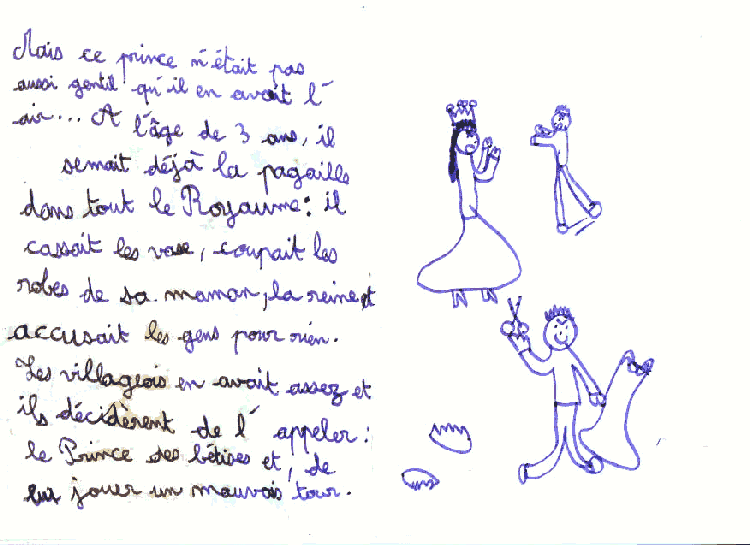 Mais ce prince n'était pas
aussi gentil qu'il en avait l'
air... A l'âge de 3 ans, il
semait déjà la pagaille
dans tout le Royaume: il
cassait les vase, coupait les
robes de sa maman, la reine et
accusait les gens pour rien.
Les villageois en avait assez et
ils décidèrent de l'appeler:
le Prince des bêtises et, de
lui jouer un mauvais tour.